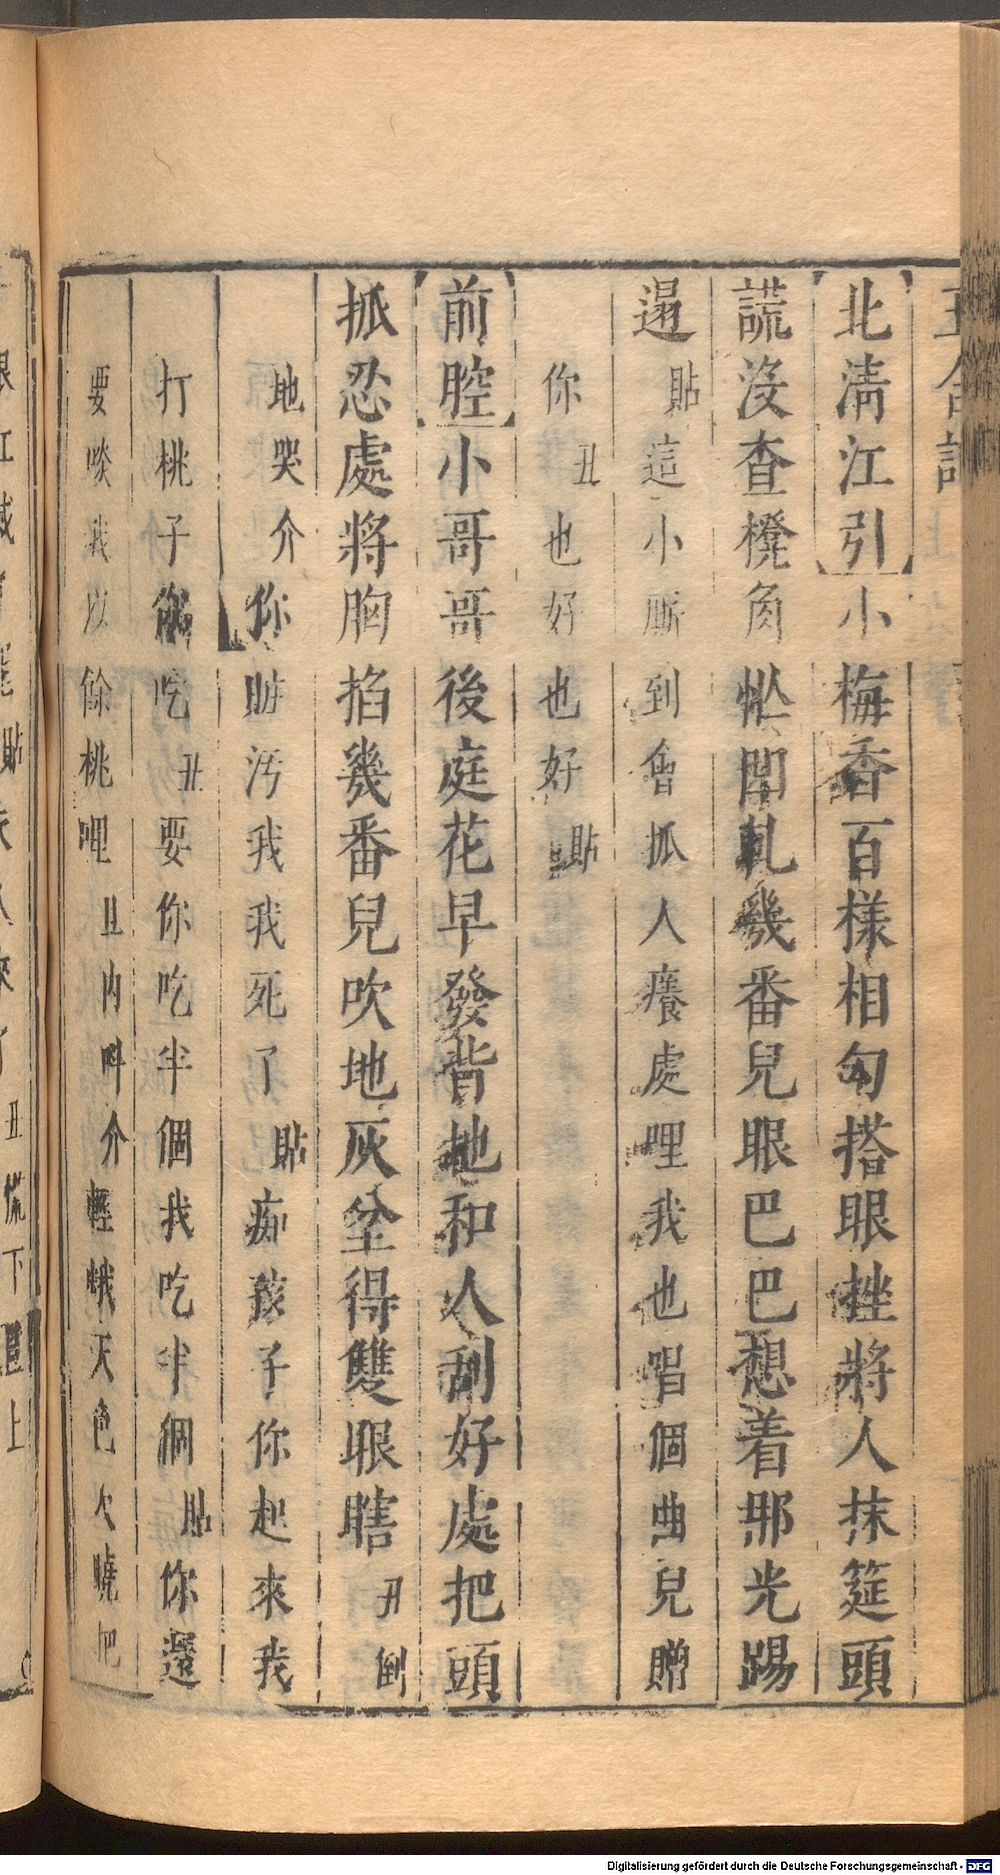 北清江引小梅香百樣相勾搭眼挫將人抹筵頭
謊沒查櫈角忙閗軋幾番兒眼巴巴想着那光踢
邋貼這小廝到會抓人癢處哩我也唱個曲兒贈
你丑也好也好貼
前腔小哥哥後庭花早發背地和人刮好處把頭
抓忍處將胸掐幾番兒吹地灰坌得雙眼瞎丑倒
地哭介你賍汚我我死了貼痴孩子你起來我
打桃子你吃丑要你吃半個我吃半個貼你還
要啖我以餘桃哩丑内呌介輕蛾天色欠曉把
丑慌下
上
Digitalisierung gefördert durch die Deutsche Forschungsgemeinschaft - DFG